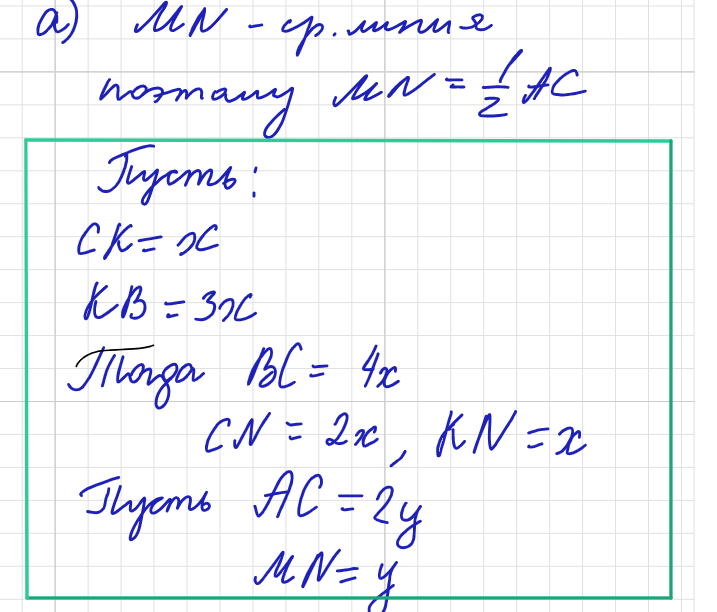 а) MN - ср. линия
поэтому MN = 1/2 AC
Пусть:
CK = x
KB = 3x
Тогда BC = 4x
CN = 2x, KN = x
Пусть AC = 2y
MN = y